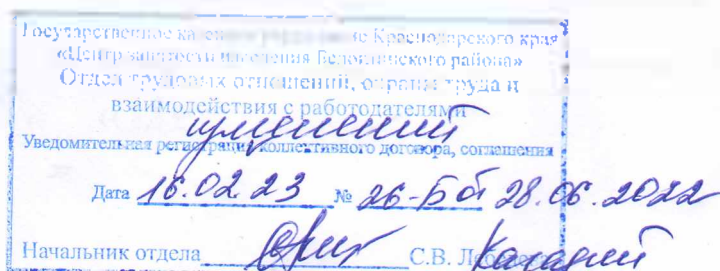 Государственное Краснодарского края
«Центр занятости населения Белоглинского района»
Отдел трудовых отношений, охраны труда и
взаимодействия с работодателями
изменений
Уведомительная регистрация коллективного договора, соглашения
Дата 16.02.23 № 26-Б от 28.06.2022
Начальник отдела С.В.